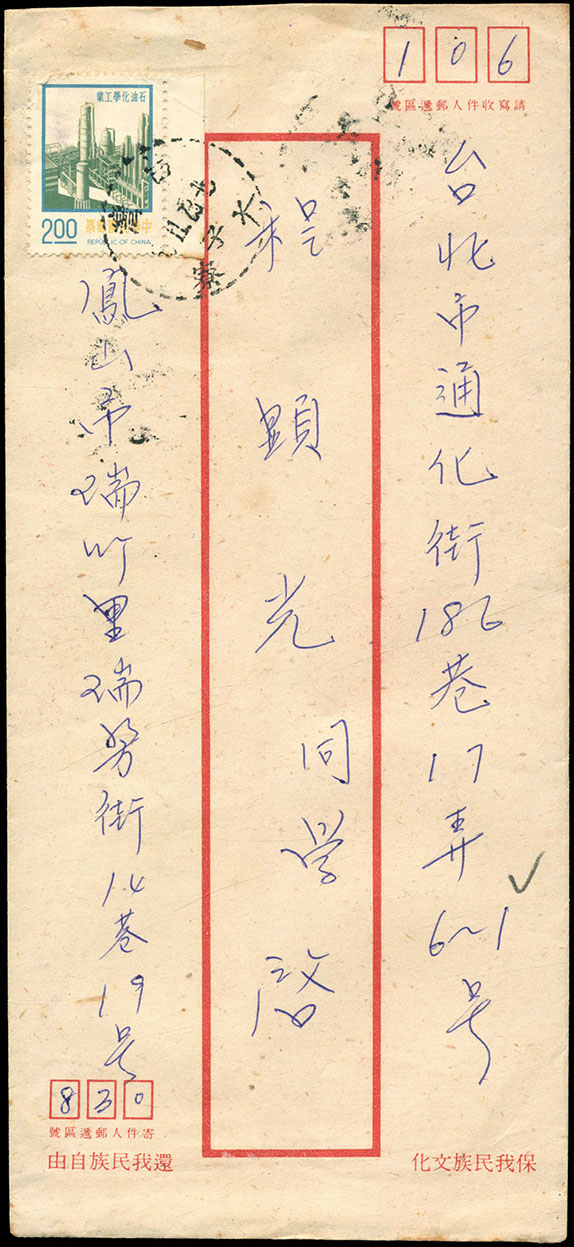 106
請寫收件人郵遞區號
石油化學工業
2.00
中華民國郵票
REPUBLIC OF CHINA
台北市通化街186巷17弄6~1号
程顕光同学啓
鳳山市瑞竹里瑞努街14巷19号
830
寄件人郵遞區號
保我民族文化
還我民族自由